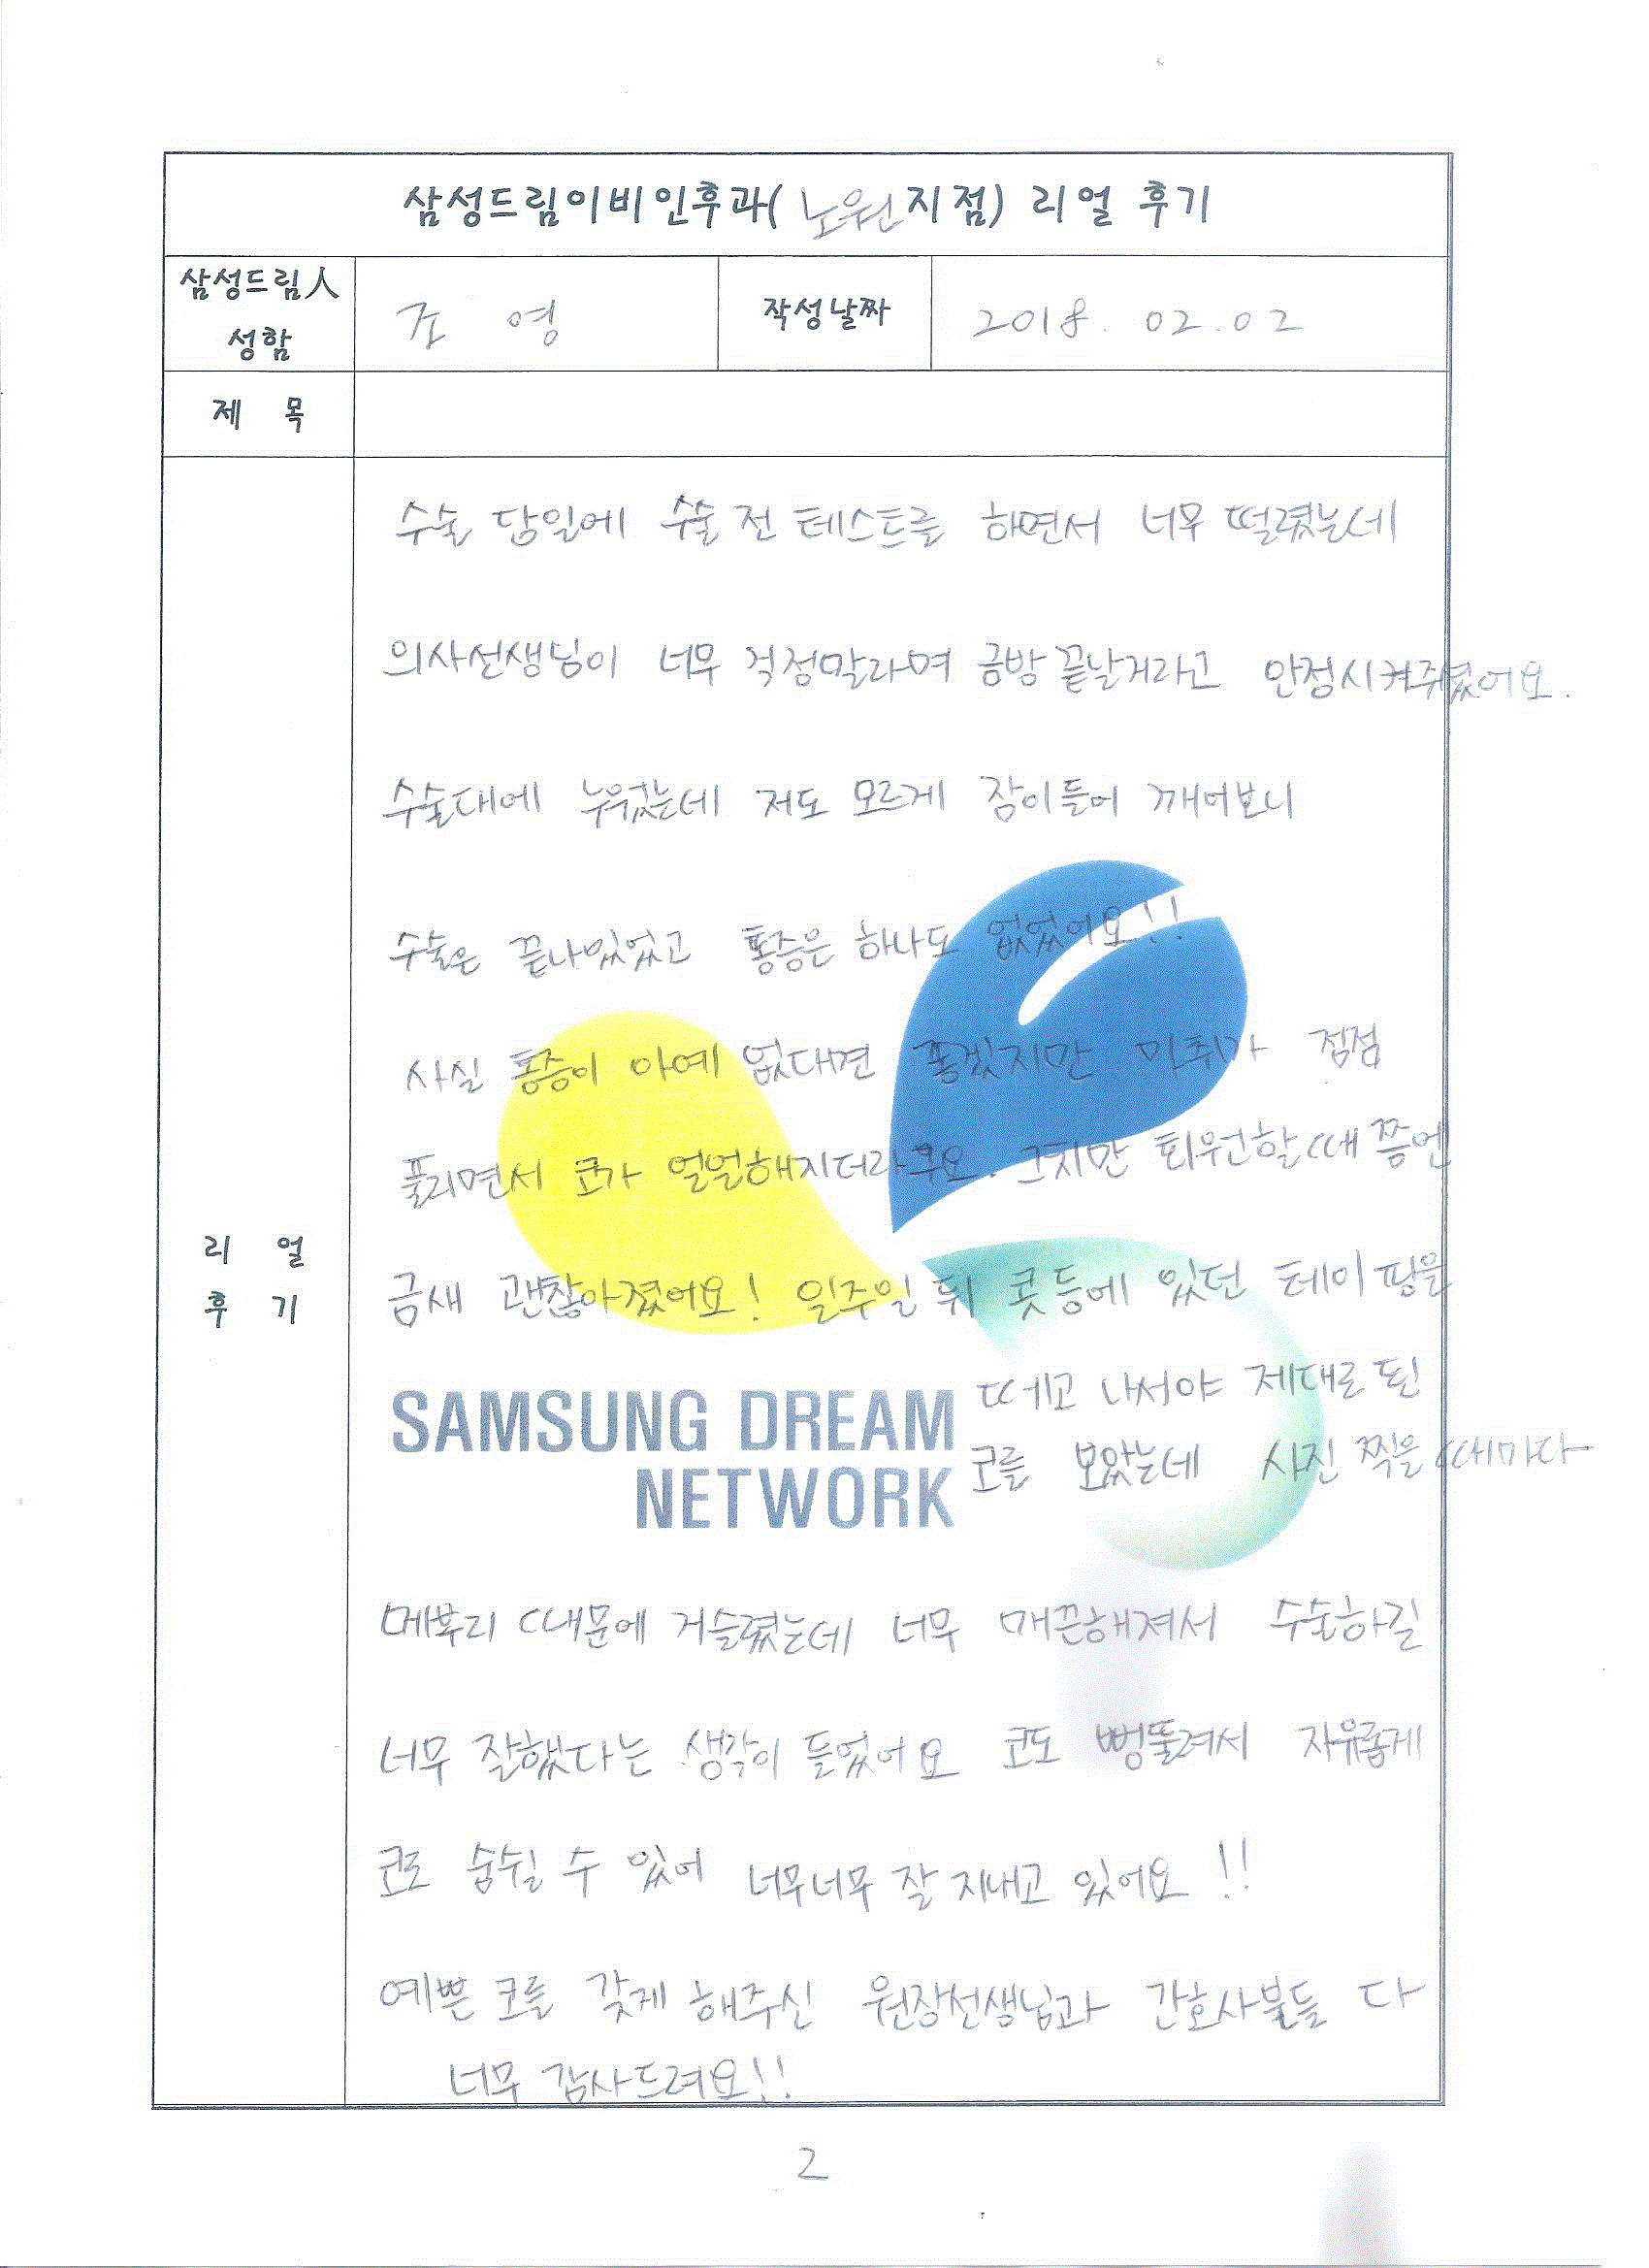 삼성드림이비인후과(노원지점) 리얼 후기
삼성드림人 성함
조 영
작성날짜
2018. 02. 02
제 목
리 얼 후 기
수술 당일에 수술 전 테스트를 하면서 너무 떨렸는데
의사선생님이 너무 걱정말라며 금방 끝날거라고 안정시켜주셨어요.
수술대에 누웠는데 저도 모르게 잠이들어 깨어보니
수술은 끝나있었고 통증은 하나도 없었어요!!
사실 통증이 아예 없대면 좋겠지만 마취가 점점
풀리면서 코가 얼얼해지더라구요. 그치만 퇴원할때 쯤엔
금새 괜찮아졌어요! 일주일 뒤 콧등에 있던 테이핑을
떼고 나서야 제대로 된
코를 보았는데 사진 찍을 때마다
SAMSUNG DREAM
NETWORK
메부리 때문에 거슬렸는데 너무 매끈해져서 수술하길
너무 잘했다는 생각이 들었어요 코도 뻥뚫려서 자유롭게
코로 숨쉴 수 있어 너무너무 잘 지내고 있어요!!
예쁜 코를 갖게 해주신 원장선생님과 간호사분들 다
너무 감사드려요!!
2